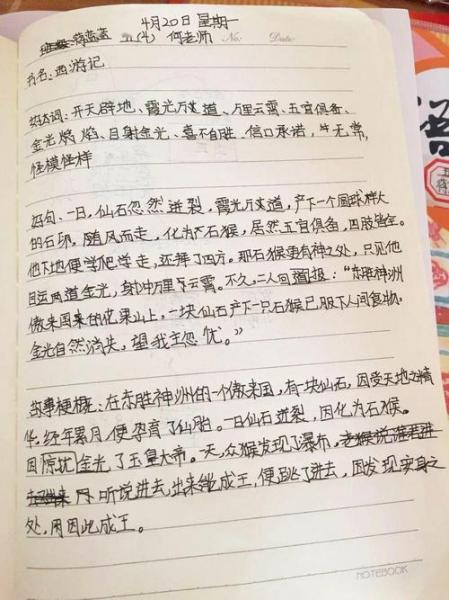 4月20日 星期一
五(4) 何老师 No: Date:
书名:西游记
好词:开天辟地、霞光万丈道、万里云霄、五官俱备、
金光焰焰、目射金光、喜不自胜、信口承诺、无常,
怪模怪样
好句:一日,仙石忽然迸裂,霞光万丈道,产下一个圆球样大
的石卵,随风而走,化为石猴,居然五官俱备,四肢皆全。
他下地便学爬学走,还拜了四方。那石猴更有神之处,只见他
目运两道金光,射冲万里云霄。不久,二人回道报:“东胜神洲
傲来国来的花果山上,一块仙石产下一只石猴已服下人间食物,
金光自然消失,望我主忽忧。”
故事梗概:在东胜神洲的一个傲来国,有一块仙石,因受天地之精
华,经年累月便孕育了仙胎。一日仙石迸裂,因化为石猴。
因惊扰金光了玉皇大帝。一天,众猴发现了瀑布,
听说进去出来能成王,便跳了进去,因发现安身之
处,用因此成王。
NOTEBOOK